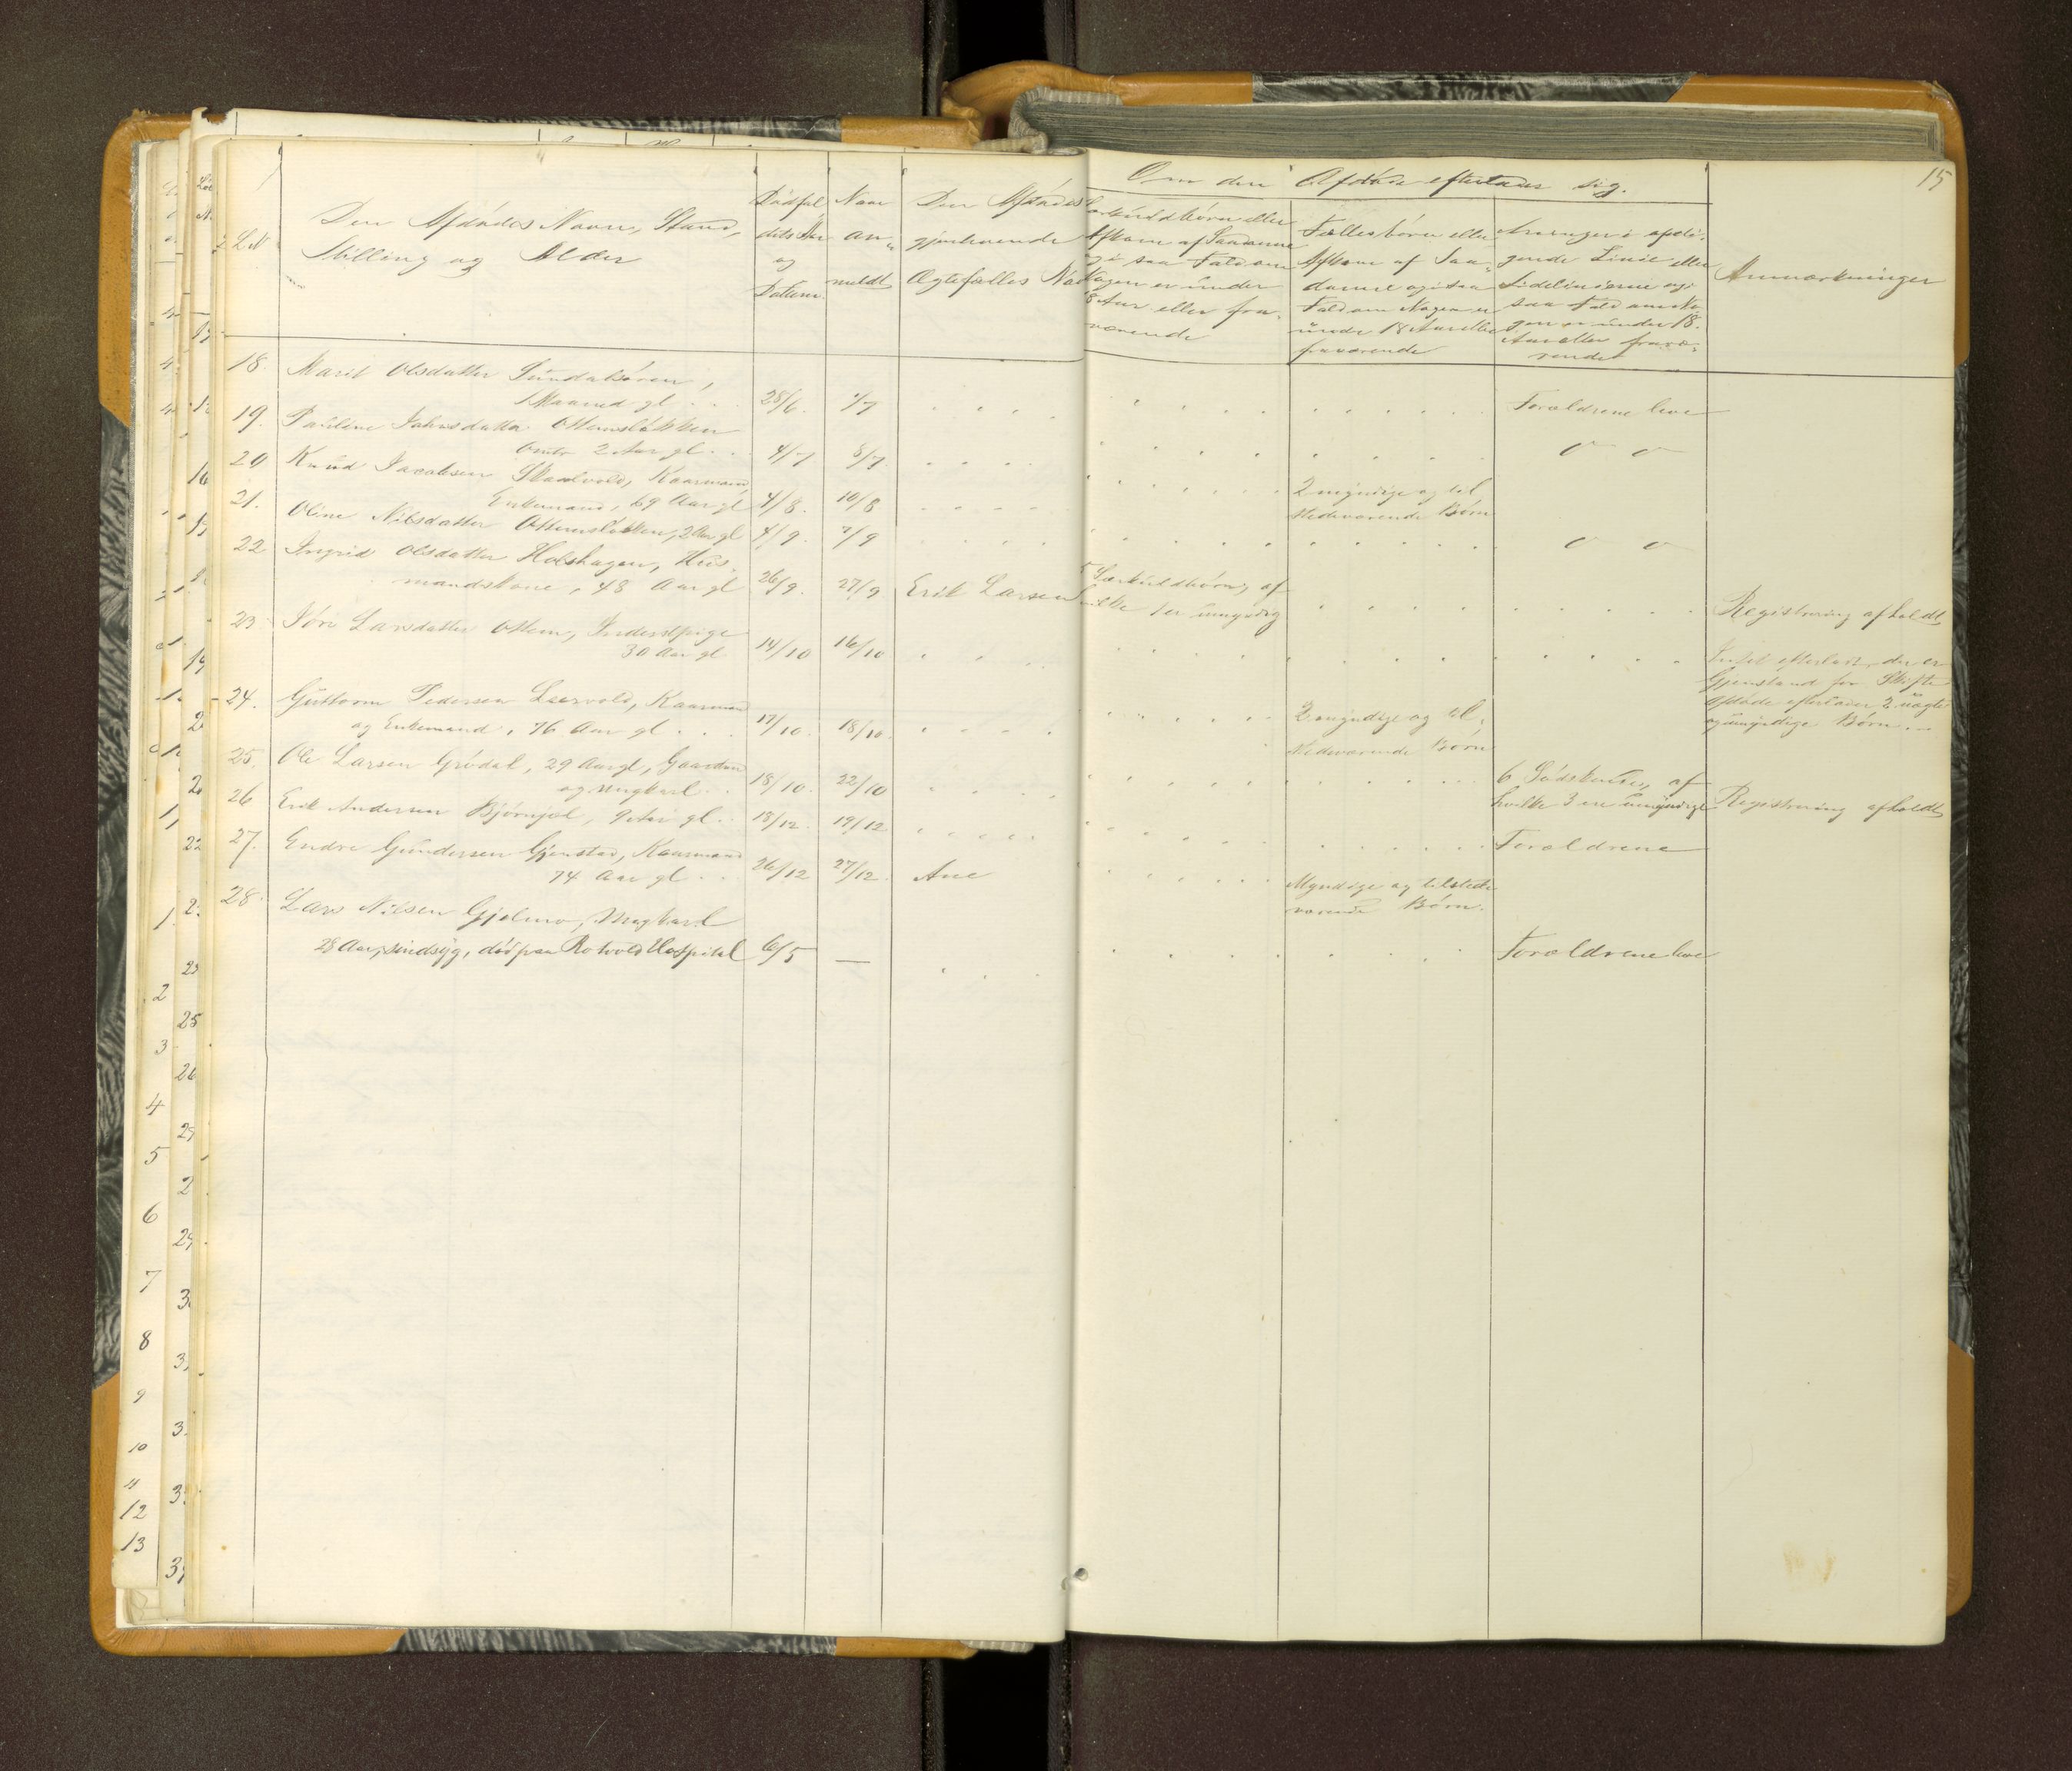 15
Om den Afdøde efterlader sig.
L N
Den Afdødes Navn, Stand,
Stilling og Alder
Dødsfal
dets
og
Datum.
Naar
an-
meldt
Den Afdødes
gjenlevende
Ægtefælles
Særkuldbørn eller
Afkom af Saadanne
og i saa Fald om
Nogen er under
18 Aar eller fra-
værende
Fællesbørn eller
Afkom af Saa-
danne og i saa
Fald om Nogen er
under 18 Aar eller
fraværende
Arvinger i opsti-
gende Linie eller
Sidelinierne og i
saa Fald om No-
gen er under 18
Aar eller fravæ-
rende
Anmærkninger
18. Marit Olsdatter Sundalsøren,
1 Maaned gl. 28/6. 1/7 Forældrene leve
19. Pauline Jahnsdatter Ottemsløkken
omtr 2 Aar gl. 4/7 8/7 " "
20 Knud Jacobsen Skaalvold, Kaarmand,
Enkemand, 69 Aar gl 4/8. 10/8 2 myndige og til
stedeværende Børn
21. Oline Nilsdatter Ottemsløkken, 2 Aar gl 4/9. 7/9 " "
22 Ingrid Olsdatter Holshagen, Hus-
mandskone, 48 Aar gl 26/9. 27/9 Erik Larsen 5 Særkuldbørn, af
hvilke 1 er umyndig Registrering afholdt
23. Jøri Larsdatter Ottem, Inderstpige
30 Aar gl 14/10 16/10 Intet efterladt, der er
Gjenstand for Skifte
Afdøde efterlader 2 uægte
og umyndige Børn.
24. Guttorm Pedersen Leervold, Kaarmand
og Enkemand, 76 Aar gl. 17/10. 18/10. 2 myndige og til-
stedeværende Børn
25. Ole Larsen Grødal, 29 Aar gl, Gaardm.
og Ungkarl. 18/10. 22/10 6 Sødskende, af
hvilke 3 ere umyndige Registrering afholdt
26 Erik Andersen Bjørnjøl, 9 Aar gl. 18/12. 19/12 Forældrene
27. Endre Gundersen Gjenstad, Kaarmand
74 Aar gl. 26/12 27/12. Ane Myndige og tilstede
værende Børn.
28. Lars Nilsen Gjelmo, Ungkarl
28 Aar, sindsyg, død paa Rotvold Hospital 6/5 — Forældrene leve